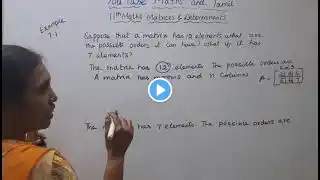 You Tube Maths and Tamil
11th Maths Matrices & Determinants
Example
7.1
Suppose that a matrix has 12 elements what are
the possible orders it can have? what if it has
7 elements?
The matrix has 12 elements The possible orders are
A matrix has m rows and n columns A =
The has 7 elements. The possible orders are